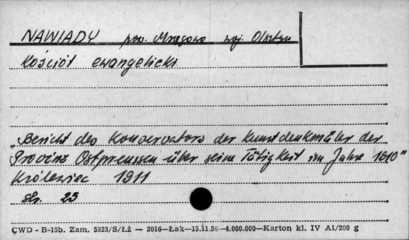 NAWIADY pow. Mrągowo woj. Olsztyn
Kościół ewangelicki
„Bericht des Konservators der Kunstdenkmäler der
Provinz Ostpreussen über seine Tätigkeit im Jahre 1910"
Królewiec 1911
str. 23
ÇWD - B-15b. Zam. 5323/S/Łż — 2016—Łak—15.11.56—4.000.000—Karton kl. IV A1/200 g